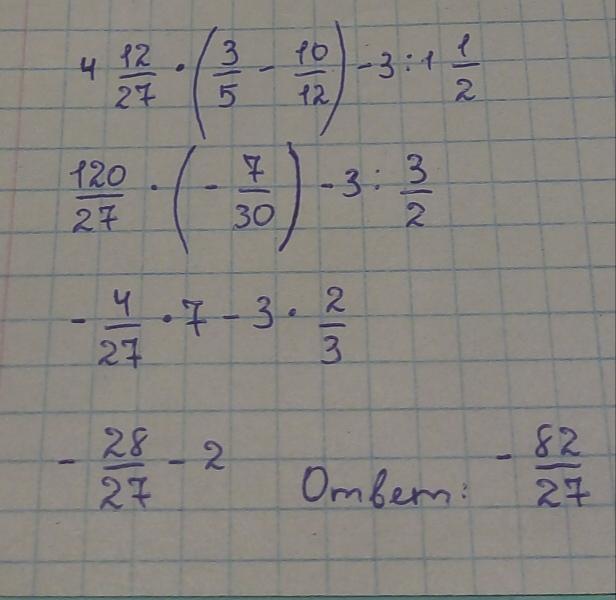 4 12/27 · (3/5 - 10/12) - 3 : 1 1/2
120/27 · (- 7/30) - 3 : 3/2
- 4/27 · 7 - 3 · 2/3
- 28/27 - 2 Ответ: - 82/27